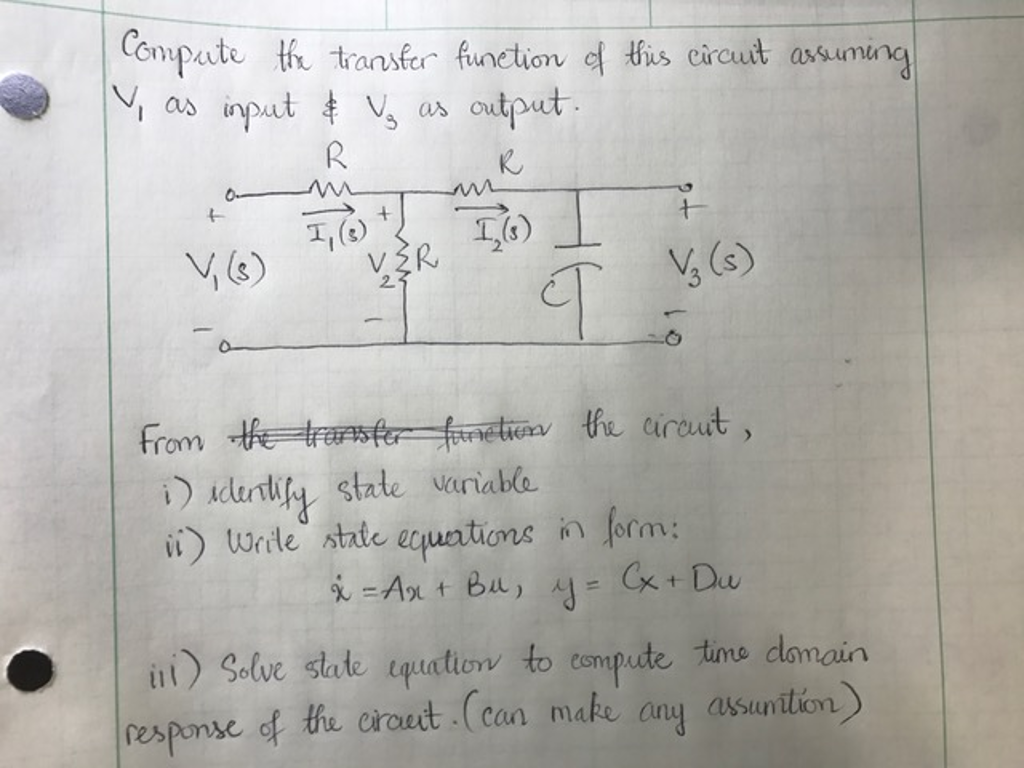 Compute the transfer function of this circuit assuming
V₁ as input & V₃ as output.
R R
+ I₁(s) + I₂(s) +
V₁(s) V₂ R C V₃(s)
- - -
From the transfer function the circuit,
i) identify state variable
ii) Write state equations in form:
ẋ = Ax + Bu, y = Cx + Du
iii) Solve state equation to compute time domain
response of the circuit. (can make any assumtion)